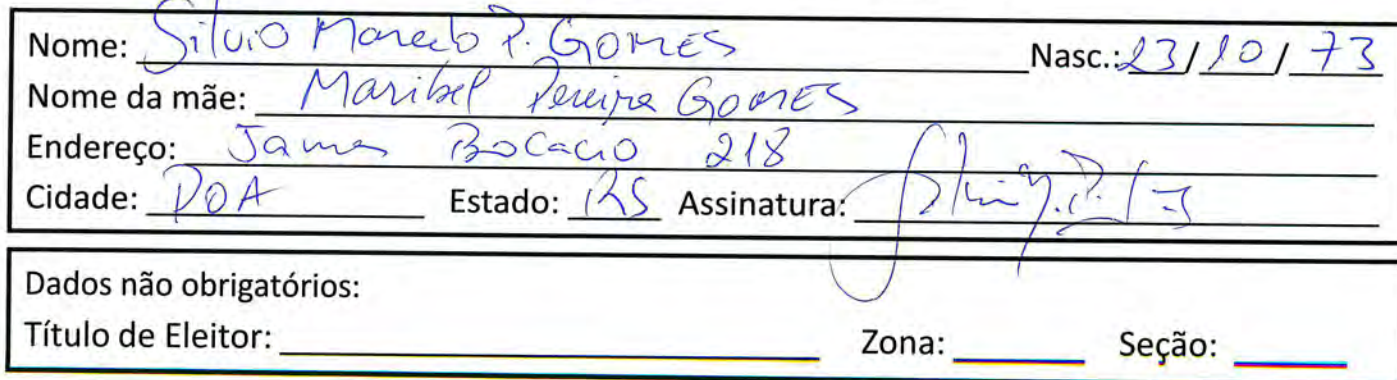 Nome: Silvio Marcelo P. GOMES Nasc.: 23/10/73
Nome da mãe: Maribel Pereira GOMES
Endereço: James BOCACIO 218
Cidade: POA Estado: RS Assinatura:
Dados não obrigatórios:
Título de Eleitor: Zona: Seção: